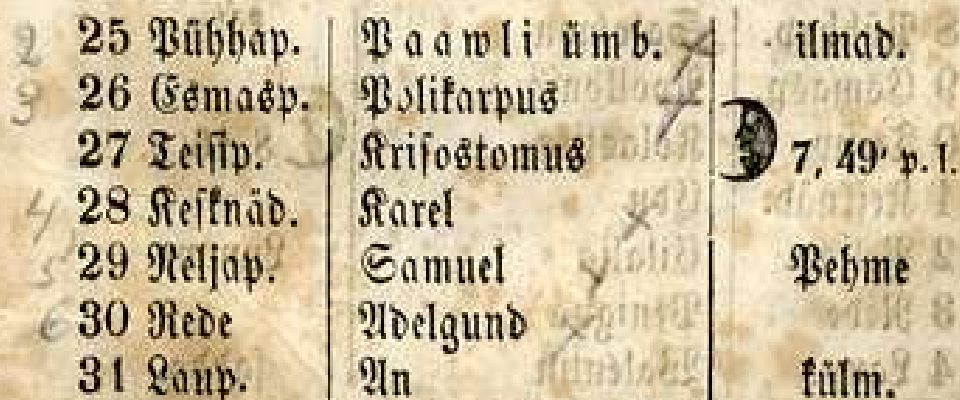 25 Pühhap. Paawli ümb. ilmad.
26 Esmasp. Polikarpus
27 Teisip. Krisostomus 7, 49' p. l.
28 Kesknäd. Karel
29 Neljap. Samuel Pehme
30 Rede Adelgund
31 Laup. An külm.